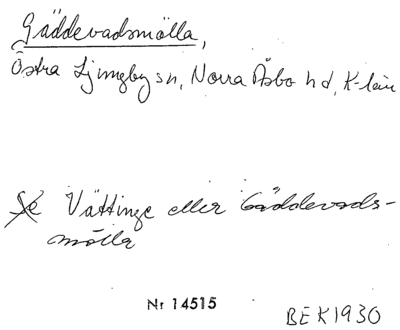 Gäddevadsmölla,
Östra Ljungby sn, Norra Åsbo hd, K-län
Se Vättinge eller Gäddevads-
mölla
Nr 14515
BEK1930